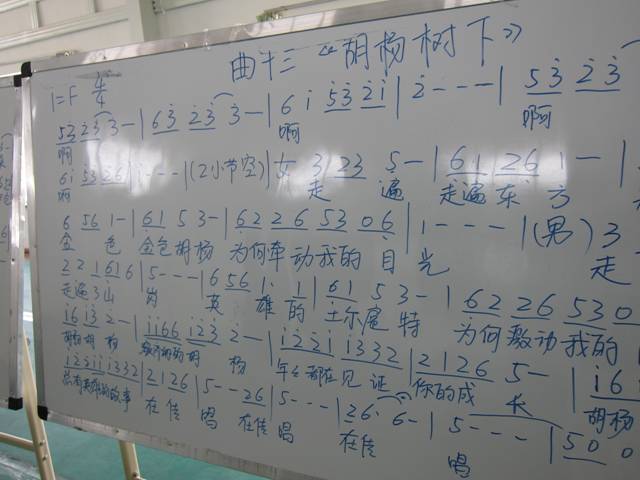 曲十三 “胡杨树下”
1=F 4/4
53 23 3- | 63 23 3- | 6 i 53 2i | 2 - - - | 53 23
啊 啊 啊
6i 53 26 | i - - - | (2小节空) | 女 3 23 5 - | 61 26 1 - |
啊 走 遍 走遍东 方
6 56 1- | 61 5 3- | 62 26 53 06 | 1 - - - | (男) 3
金 色 金色胡杨 为何牵动我的 目 光 走
22 1616 | 5 - - - | 6 56 1· 1 | 61 5 3- | 62 26 53 0
走遍 山 岗 英 雄 的 土尔扈特 为何激动我的
i6 i3 2- | ii66 i23 2- | i22i i332 | 2126 5- | i6
胡杨 胡 杨 胡 杨 年年都在见 证 你的成 长 胡杨
i23i ii332 | 2126 | 5 - - 26 | 5 - - - | 26· 6- | 5 - - - | 50 0
英雄的故事 在传 唱 在传 唱 在传 唱